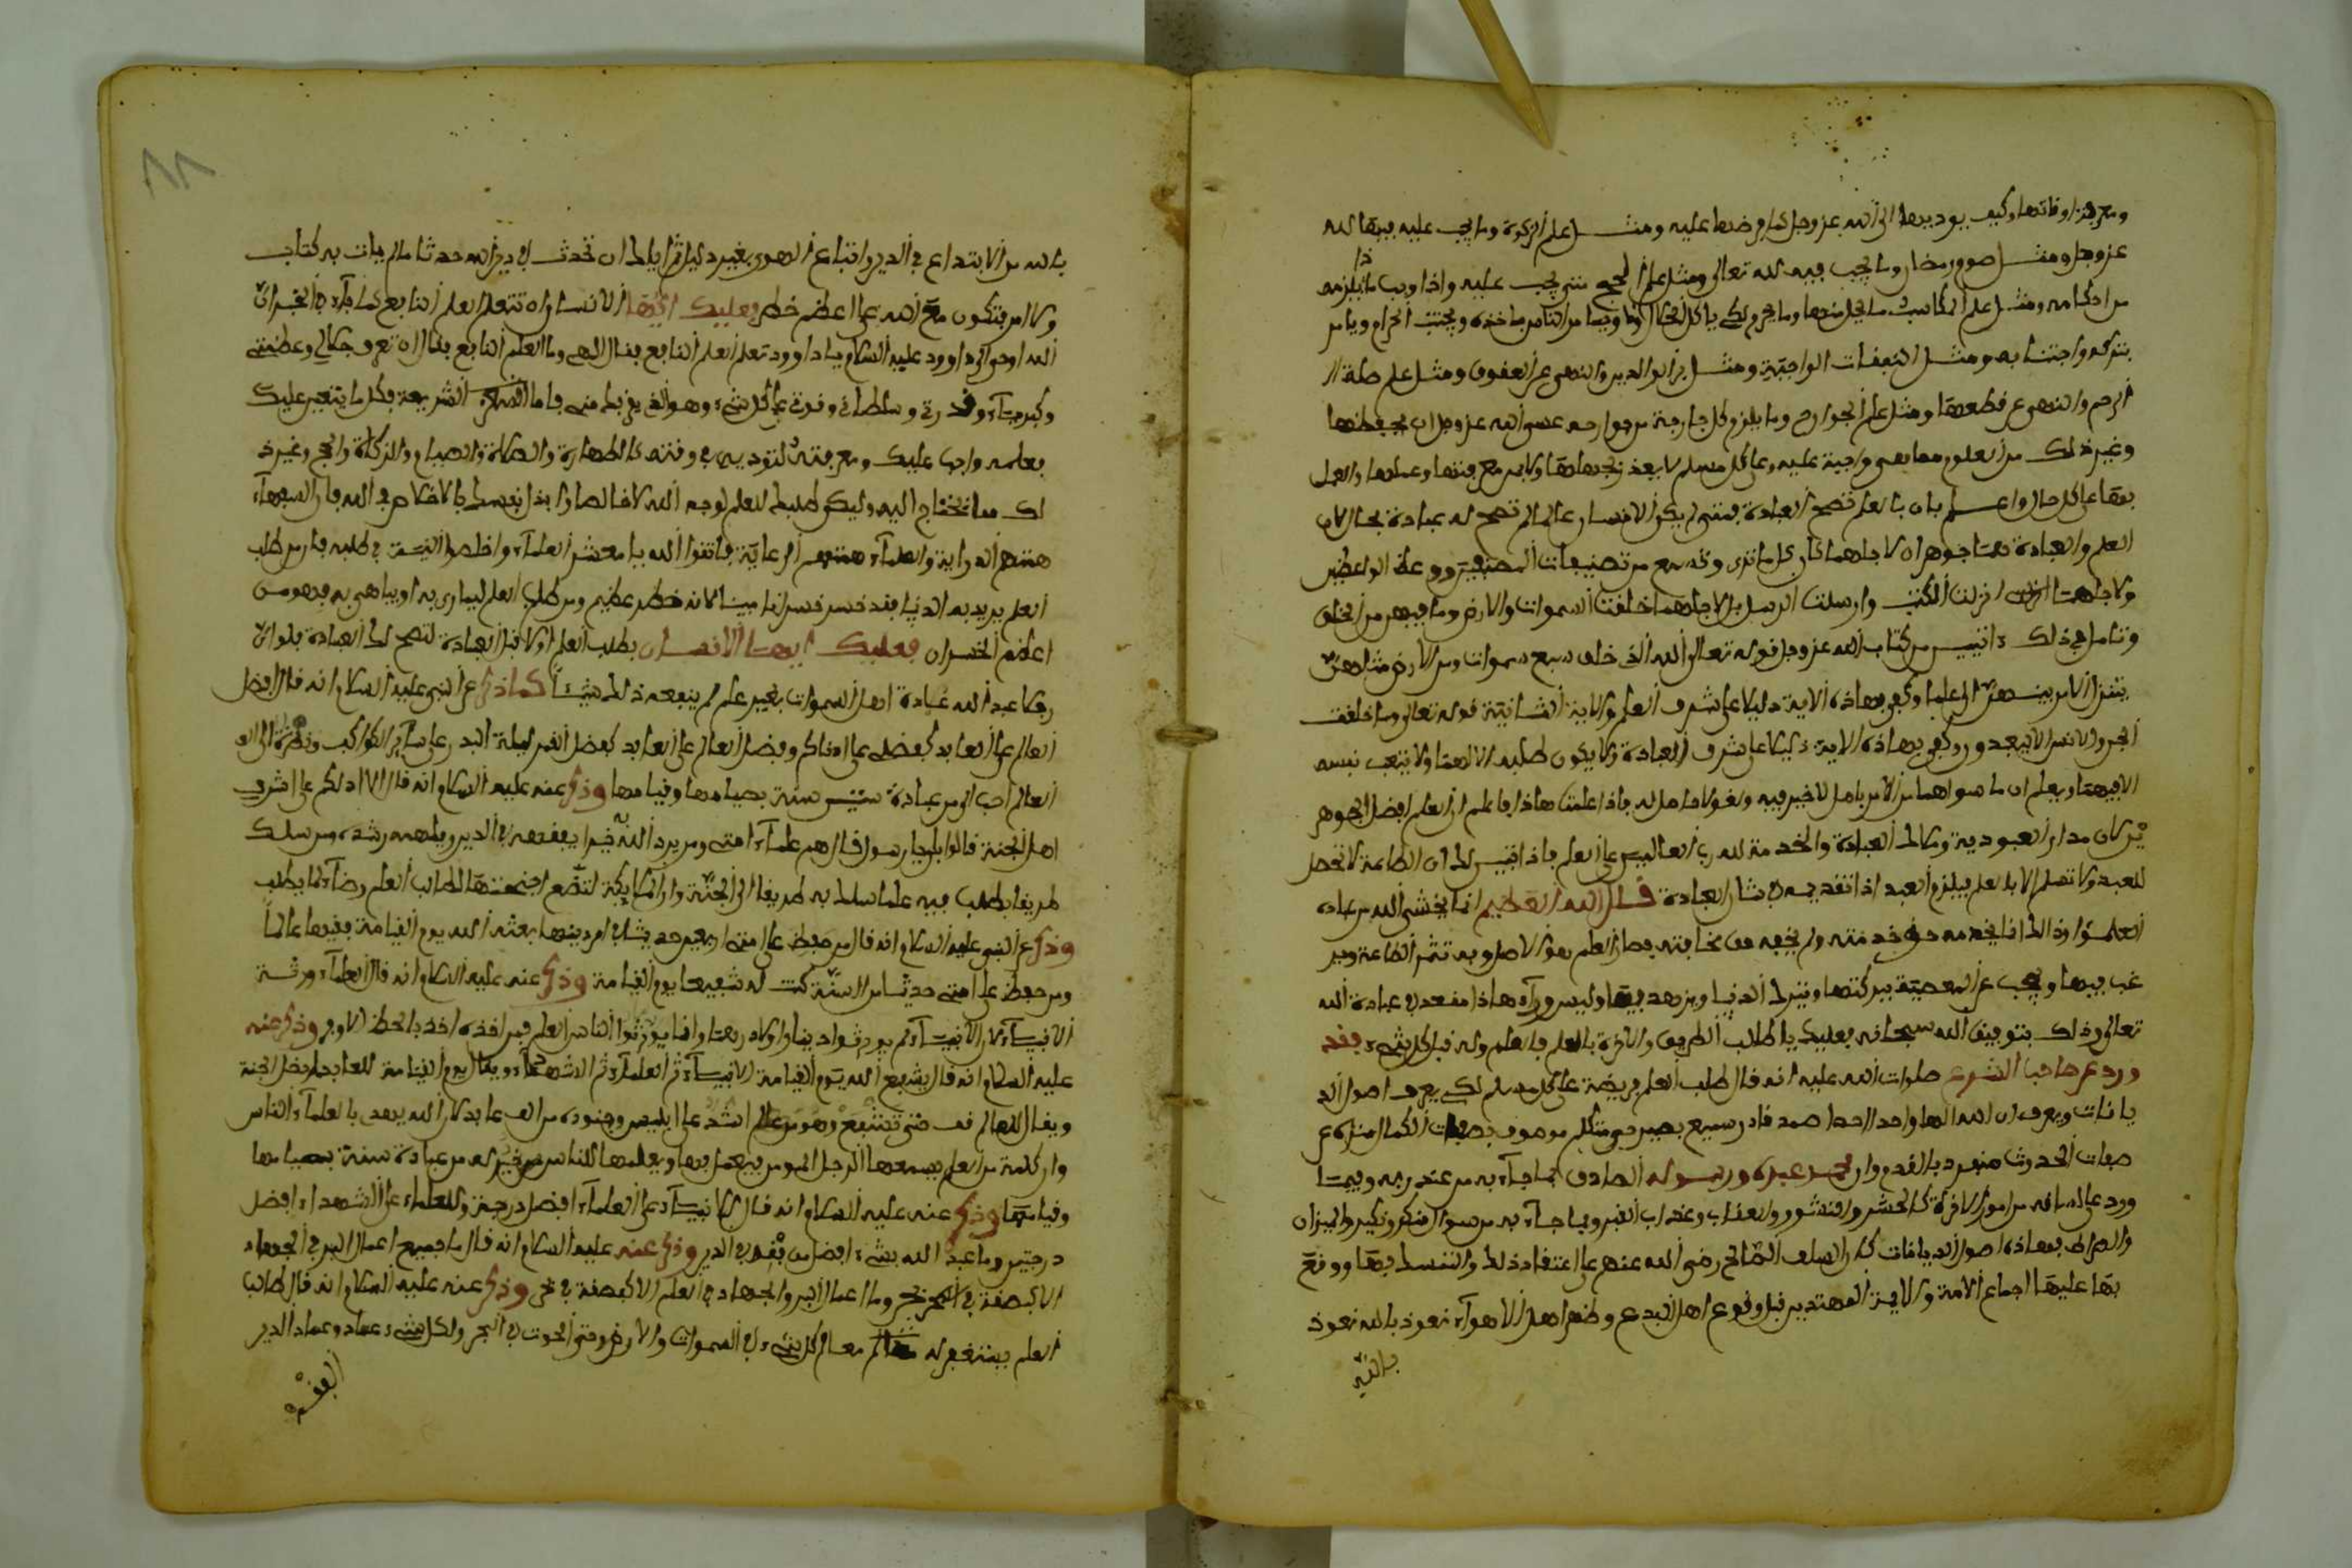 ومعرفة اوقاتها وكيف يوديها الى الله عز وجل كما فرضها عليه ومثل علم الزكوة وما يجب عليه فيها لله
عز وجل ومثل صوم رمضان وما يجب فيه لله تعالى ومثل علم الحج متى يجب عليه واذا وجب ما يلزمه
من احكامه ومثل علم المكاسب ما يحل منها وما يحرم لكي ياكل الحلال وفيما من الناس ياخذه ويجتنب الحرام ويامر
بتركه واجتنابه ومثل النفقات الواجبة ومثل بر الوالدين والنهي عن العقوق ومثل علم صلة
الرحم والنهي عن قطعها ومثل علم الجوارح وما يلزم كل جارحة من جوارحه عسى الله عز وجل ان يحفظها
وغير ذلك من العلوم مما هي واجبة عليه وعلى كل مسلم لا يعذر بجهلها ولابد من معرفتها وعملها والعمل
بها على كل حال واعلم بان بالعلم تصح العبادة فمتى لم يكن الانسان عالما لم تصح له عبادة بحال لان
العلم والعبادة هما جوهران لاجلهما كان كل ما ترى وتسمع من تصنيفات المصنفين ووعظ الواعظين
ولاجلهما انزلت الكتب وارسلت الرسل بل لاجلهما خلقت السموات والارض وما فيهن من الخلق
وتامل في ذلك ايتين من كتاب الله عز وجل قوله تعالى الله الذي خلق سبع سموات ومن الارض مثلهن
يتنزل الامر بينهن الى علما وكفى بهاذه الاية دليلا على شرف العلم والاية الثانية قوله تعالى وما خلقت
الجن والانس الا ليعبدون وكفى بهاذه الاية دليلا على شرف العبادة ولا يكون طلبه الا لهما ولا يتعب نفسه
الا فيهما ويعلم ان ما سواهما من الامر باطل لا خير فيه ولغو لا حاصل له فاذا علمت هاذا فاعلم ان العلم افضل الجوهر
ين كان مدار العبودية وكمال العبادة والخدمة لله رب العالمين على العلم فاذا تبين لك ان الطاعة لا تحصل
للعبد ولا تسلم الا بالعلم فيلزم العبد اذا تقديمه في شان العبادة قال الله العظيم انما يخشى الله من عباده
العلمؤا وذالك انما يخدمه حق خدمته ولم يخفه حق مخافته فصار العلم هو الاصل وبه تثمر الطاعة وير
غب فيها ويحجب عن المعصية فيركتها ويترك الدنيا ويزهد فيها وليس وراء هاذا مقعد في عبادة الله
تعالى وذلك بتوفيق الله سبحانه فعليك يا طالب الطريق والاخرة بالعلم فالعلم وله قبل كل شيء فقد
ورد عن صاحب الشرع صلوات الله عليه انه قال طلب العلم فريضة على كل مسلم لكي يعرف اصول الد
يانات ويعرف ان الله الها واحدا احدا صمد قادر سميع بصير حي متكلم موصوف بصفات الكمال منزه عن
صفات الحدوث منفرد بالقدم وان محمد عبده ورسوله الصادق بما جاء به من عند ربه وفيما
ورد على لسانه من امور الاخرة كالحشر والنشور والعذاب وعذاب القبر وبما جاء به من سوال منكر ونكير والميزان
والصراط فهاذه اصول الديانات كان السلف الصالح رضي الله عنهم على اعتقاد ذلك والتمسك بها ووقع
بها عليها اجماع الامة والايمة المهتدين قبل وقوع اهل البدع وظهر اهل الاهواء نعوذ بالله نعوذ
بالله من
بالله من الابتداع في الدين واتباع الهوى بغير دليل ثم اياك ان تحدث في دين الله حدثا ما لم يات به كتاب
ولا امر فتكون مع الله على اعظم خطر فعليك ايها الانسان ان تتعلم العلم النافع كما جاء في الخبر ان
الله اوحى الى داوود عليه السلام يا داوود تعلم العلم النافع فقال الهي وما العلم النافع فقال ان تعرف جلالي وعظمتي
وكبرياء وقدرتي وسلطاني وقدرتي على كل شيء وهو الذي يقربك مني فاما الشريعة فكل ما يتعين عليك
بعلمه واجبا عليك ومعرفته لتوديه في وقته كالطهارة والصلاة والصيام والزكاة والحج وغير ذ
لك مما تحتاج اليه وليكن طلبك للعلم لوجه الله خالصا وخذ نفسك بالاخلاص في الله فان السفهاء
همتهم الدراية والعلماء همتهم الرعاية فاتقوا الله يا معشر العلماء واخلصوا النية في طلبه فان من طلب
العلم يريد به الدنيا فقد خسر خسرانا مبينا لانه خطر عظيم ومن طلب العلم ليماري به او يباهي به فهو من
اعظم الخسران فعليك ايها الانسان بطلب العلم اولا قبل العبادة لتصح لك العبادة فلو ان
رجلا عبد الله عبادة اهل السموات بغير علم لم ينفعه ذلك شيئا كما ذكر عن النبي عليه السلام انه قال فضل
العالم على العابد كفضلي على ادناكم وفضل العالم على العابد كفضل القمر ليلة البدر على سائر الكواكب ونظرة الى الو
العالم احب الي من عبادة ستين سنة بصيامها وقيامها وذكر عنه عليه السلام انه قال الا ادلكم على اشرف
اهل الجنة قالوا بلى يا رسول قال هم علماء امتي ومن يرد الله به خيرا يفقهه في الدين ويلهمه رشده ومن سلك
طريقا يطلب فيه علما سلك به طريقا الى الجنة وان الملايكة لتضع اجنحتها لطالب العلم رضاء لما يطلب
وذكر عن النبي عليه السلام انه قال من حفظ على امتي اربعين حديثا في امر دينها بعثه الله يوم القيامة فقيها عالما
ومن حفظ على امتي حديثا من السنة كنت له شفيعا يوم القيامة وذكر عنه عليه السلام انه قال العلماء ورثة
الانبياء لان الانبياء لم يورثوا دينارا ولا درهما وانما يورثوا الناس العلم فمن اخذه اخذ بالحظ الاوفر وذكر عنه
عليه السلام انه قال يشفع الله يوم القيامة الانبياء ثم العلماء ثم الشهداء ويقال يوم القيامة للعابد ادخل الجنة
ويقال للعالم قف حتى تشفع وهو من عالم اشد على ابليس وجنوده من الف عابد لان الله يهدي بالعلماء الناس
وان كلمة من العلم يسمعها الرجل المومن فيعمل بها ويعلمها للناس خير له من عبادة سنة بصيامها
وقيامها وذكر عنه عليه السلام انه قال للانبياء على العلماء افضل درجة وللعلماء على الشهداء افضل
درجتين وما عبد الله بشيء افضل من فقه في الدين وذكر عنه عليه السلام انه قال ما جميع اعمال البر في الجهاد
الا كبصقة في بحر وما اعمال البر والجهاد في العلم الا كبصقة في بحر وذكر عنه عليه السلام انه قال طالب
العلم يستغفر له معالم كل شيء في السموات والارض حتى الحوت في البحر ولكل شيء عماد وعماد الدين
الفقه